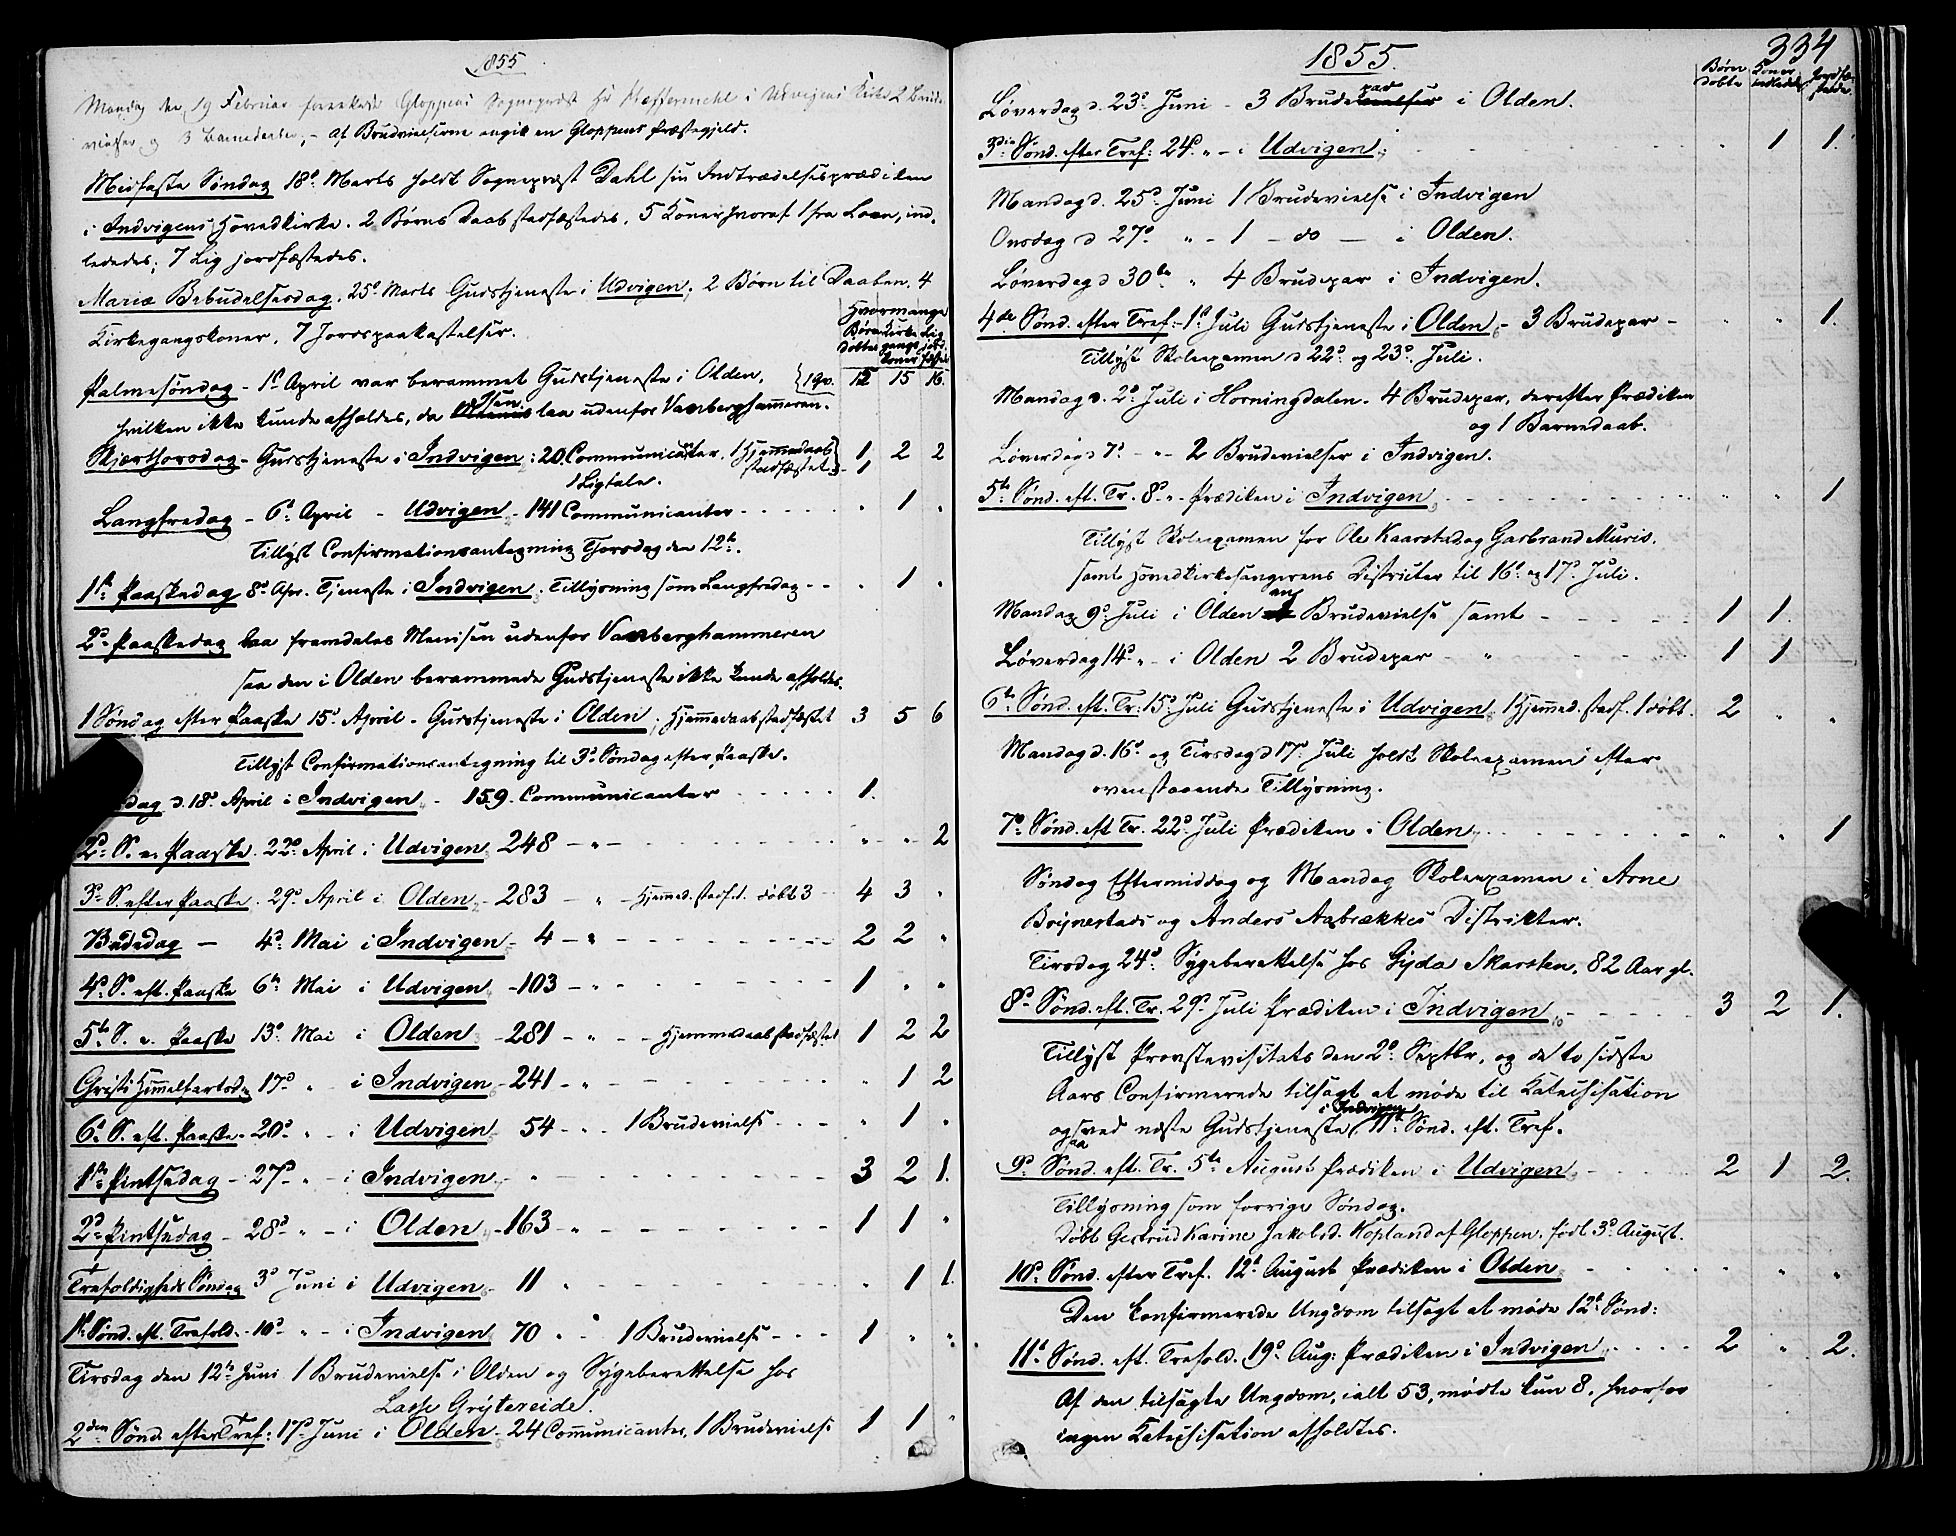 1855
Mandag den 19 Februar forrettede Gloppens Sognepræst Hr Heffermehl i Udvigens Kirke 2 Brude-
vielser og 3 Barnedaabe, - af Brudevielserne angik en Gloppens Præstegjeld.
Midfaste Søndag 18d Marts holdt Sognepræst Dahl sin Indtrædelsesprædiken
i Indvigens Hovedkirke. 2 Børns Daab stadfæstedes, 5 Koner hvoraf 1 fra Loen, ind-
lededes; 7 Lig jordfæstedes.
Mariæ Bebudelsesdag, 25d Marts Gudstjeneste i Udvigen; 2 Børn til Daaben, 4
Kirkegangskoner, 7 Jordspaakastelser.
Hvormange
Børn Kirke Lig
døbte gangs jord
koner fæst
Palmesøndag - 1d April var berammet Gudstjeneste i Olden, 12 15 16
hvilken ikke kunde afholdes, da Isen laa udenfor Varberghammeren.
Skjærthorsdag - Gudstjeneste i Indvigen: 20 Communicanter, 1 Hjemmedaab 1 2 2
stadfæstet - 1
1 Ligtale.
Langfredag - 6d April - Udvigen - 141 Communicanter - - - - - " 1 "
Tillyst Confirmationsantegning Torsdag den 12te.
1ste Paaskedag 8d Apr. Tjeneste i Indvigen. Tillysning som Langfredag - - " 1 "
2d Paaskedag laa fremdeles Menisen udenfor Varberghammeren
saa den i Olden berammede Gudstjeneste ikke kunde afholdes.
1 Søndag efter Paaske 15d April - Gudstjeneste i Olden; Hjemmedaab stadfæstet 3 5 6
Tillyst Confirmationsantegning til 3d Søndag efter Paaske.
dag d. 18d April i Indvigen - 159 Communicanter - - - - - 1.
2d S. e. Paaske. 22d April i Udvigen 248 - " - - - - - " " 2
3d S. efter Paaske. 29d April i Olden - 283 - " - Hjemmed. stadf. 1. døbt 3 4 3 "
Bededag - 4d Mai i Indvigen - 4 - " - - - - - 2 2 "
4d S. eft. Paaske 6te Mai i Udvigen - 103 - " - - - - - 1 " "
5te S. e. Paaske 13d Mai i Olden - 281 - " - Hjemmedaab stadfæstet 1 2 2
Christi Himmelfartsd. 17d " - i Indvigen - 241 - " - - - - - " 1 2
6d S. eft. Paaske - 20d " - i Udvigen 54 - " 1 Brudevielse - - - " 1 "
1ste Pintsedag - 27d " - i Indvigen - " - - - - - 3 2 1.
2d Pintsedag - 28d " - i Olden - 163 - " - - - - - 1 1 "
Trefoldigheds Søndag 3d Juni i Udvigen - 11 " - - - - - " 1 1.
1ste Sønd. eft. Trefold. - 10d " - i Indvigen 70 " " 1 Brudevielse - - - 1 " "
Tirsdag den 12te Juni 1 Brudevielse i Olden og Sygeberettelse hos
Lasse Grytereide.
2den Sønd. efter Tref: 17d Juni i Olden - 24 Communicanter, 1 Brudevielse 1 1 "
1855.
334
Børn døbte Koner indledede Jordfæstede
Løverdag d. 23d Juni - 3 Brudepar i Olden.
3die Sønd. efter Tref: 24d " - i Udvigen; - - - - - " 1 1.
Mandag d. 25d Juni 1 Brudevielse i Indvigen
Onsdag d 27d " - 1 - do - i Olden.
Løverdag d 30te " 4 Brudepar i Indvigen.
4de Sønd. efter Tref: - 1d Juli Gudstjeneste i Olden - 3 Brudepar - " " 1.
Tillyst Skoleexamen d 22d og 23d Juli.
Mandag d. 2d Juli i Horningdalen - 4 Brudepar, derefter Prædiken
og 1 Barnedaab.
Løverdag d 7d - " - 2 Brudevielser i Indvigen.
5te Sønd. eft. Tr. 8d " - Prædiken i Indvigen, - - - - - " " 1
Tillyst Skoleexamen for Ole Kaarstad og Garbrand Muris,
samt Hovedkirkesangerens Districter til 16d og 17d Juli.
Mandag 9d Juli i Olden en Brudevielse samt - - - - - 1 1.
Løverdag 14d " - i Olden 2 Brudepar - " - - - 1 1
6te Sønd. eft. Tr: 15d Juli Gudstjeneste i Udvigen; 1 Hjemmed. stadf. 1 døbt. 2 " "
Mandag d. 16d og Tirsdag d 17d Juli holdt Skoleexamen efter
ovenstaaende Tillysning.
7d Sønd. eft Tr. 22d Juli Prædiken i Olden, - - - - - " " 1
Søndag Eftermiddag og Mandag Skoleexamen i Arne
Bøjnestads og Anders Aabrækkes Distrikter.
Tirsdag 24d Sygeberettelse hos Gyda Skarsten, 82 Aar gl.
8d Sønd. eft. Tr. 29d Juli Prædiken i Indvigen; - - - - - 3 2 1.
Tillyst Provstevisitats den 2d Septbr, og de to sidste
Aars Confirmerede tilsagt at møde til Katechisation
ogsaa ved næste Gudstjeneste i Indvigen, 11te Sønd. eft. Tref.
9d Sønd. eft. Tr. 5te August Prædiken i Udvigen, - - - - 2 1 2.
Tillysning som forrige Søndag.
Døbt Gertrud Karine Jakobsd. Kopland af Gloppen, født 3d August.
10d Sønd. efter Tref. 12d August Prædiken i Olden - - - - - " " "
Den konfirmerede Ungdom tilsagt at møde 12te Sønd:
11d Sønd. eft. Trefold. 19d Aug: Prædiken i Indvigen, - - - - 2 " 2.
Af den tilsagte Ungdom, ialt 53, mødte kun 8, hvorfor
ingen Katechisation afholdtes.